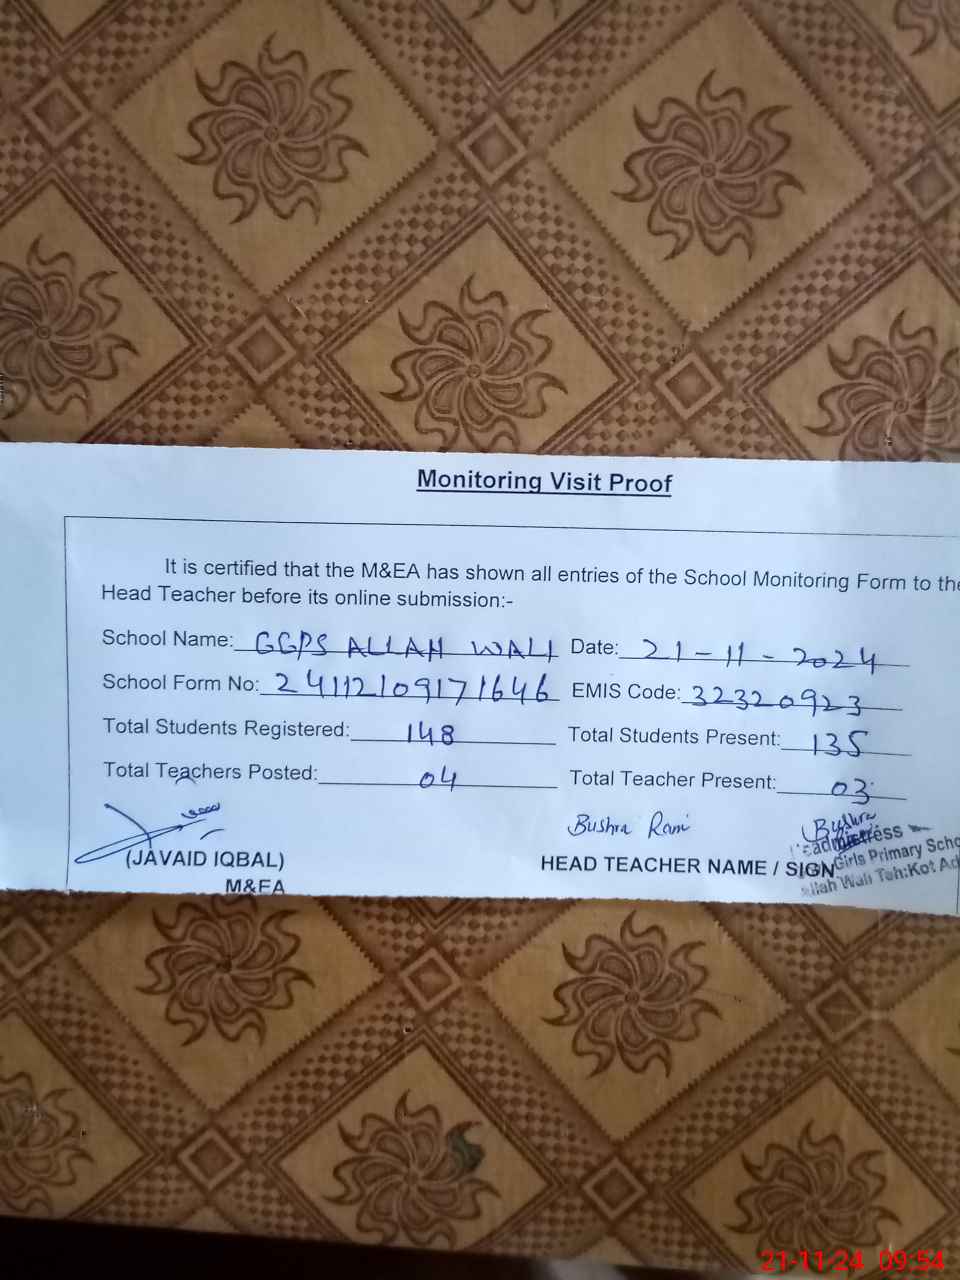 Monitoring Visit Proof
It is certified that the M&EA has shown all entries of the School Monitoring Form to the
Head Teacher before its online submission:-
School Name: GGPS ALLAH WALI Date: 21-11-2024
School Form No: 24112109171646 EMIS Code: 32320923
Total Students Registered: 148 Total Students Present: 135
Total Teachers Posted: 04 Total Teacher Present: 03
Bushra Rani Bushra
(JAVAID IQBAL) HEAD TEACHER NAME / SIGN
M&EA
Girls Primary Scho
Wali Teh:Kot Ad
21-11-24 09:54